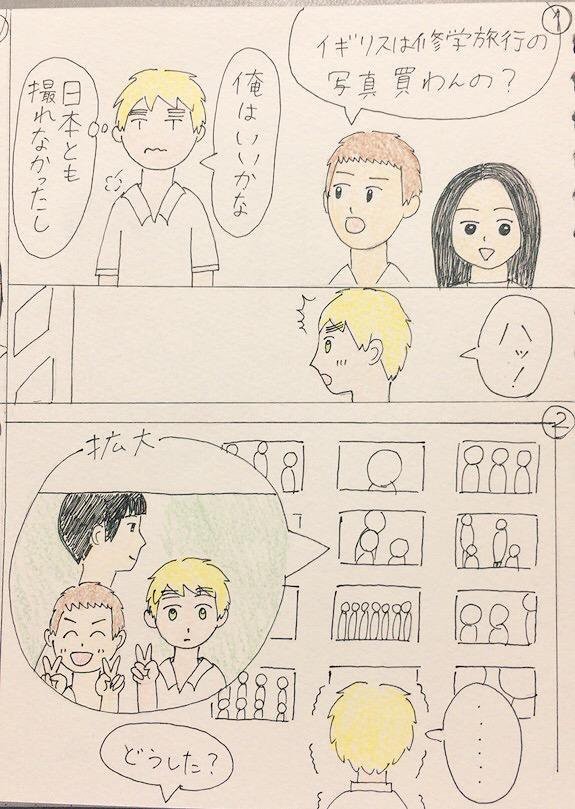 ①
イギリスは修学旅行の
写真買わんの？
俺はいいかな
日本とも
撮れなかったし
ハッ！
②
拡大
………
どうした？